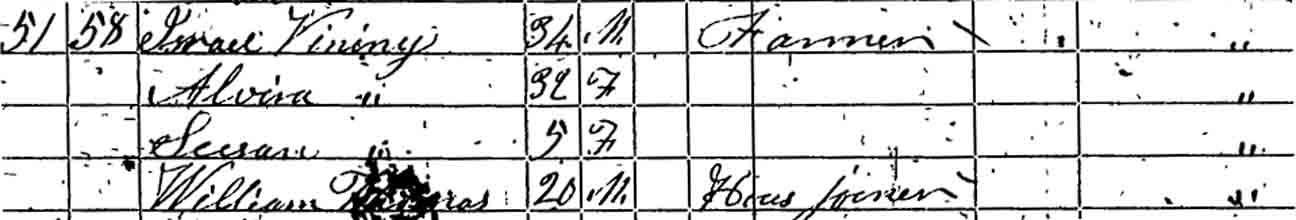 51 58 Israel Vining 34 M Farmer "
Alvira " 32 F "
Susan " 5 F "
William Thomas 20 M Hous joiner "